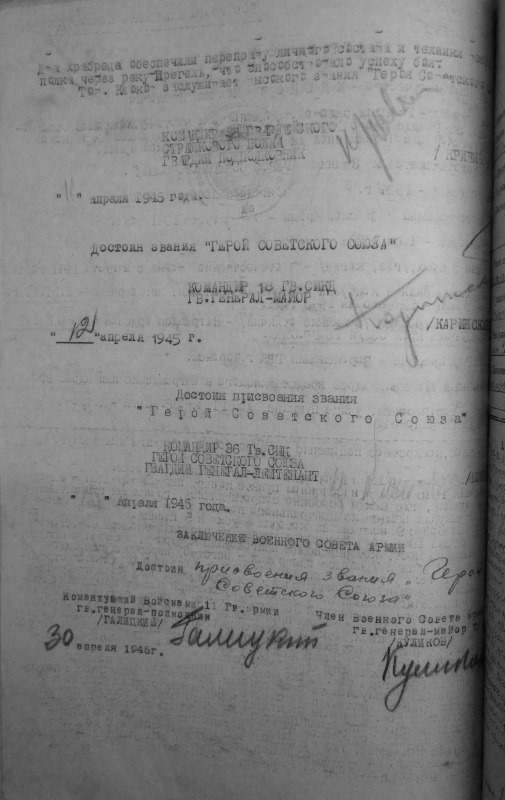 Два храбреца обеспечили переправу личного состава и техники
полка через реку Прегель, что способствовало успеху боя.
Тов. заслуживает высокого звания "Героя Советского
КОМАНДИР ГВАРДЕЙСКОГО
СТРЕЛКОВОГО ПОЛКА
ГВАРДИИ ПОДПОЛКОВНИК
/КРИВИЧ
"11" апреля 1945 года.
Достоин звания "ГЕРОЙ СОВЕТСКОГО СОЮЗА"
КОМАНДИР 18 ГВ.СИКД
ГВ.ГЕНЕРАЛ-МАЙОР
/КАРИНСКОЙ
"12" апреля 1945 г.
Достоин присвоения звания
"Герой Советского Союза"
КОМАНДИР 36 Гв.СИК
ГЕРОЙ СОВЕТСКОГО СОЮЗА
ГВАРДИИ ГЕНЕРАЛ-ЛЕЙТЕНАНТ
" " Апреля 1945 года.
ЗАКЛЮЧЕНИЕ ВОЕННОГО СОВЕТА АРМИИ
Достоин присвоения звания „Герой
Советского Союза"
Командующий Войсками 11 Гв.армии
гв.генерал-полковник
/ГАЛИЦКИЙ/
Галицкий
Член Военного Совета
гв.генерал-майор
/КУЛИКОВ/
Куликов
30 апреля 1945г.